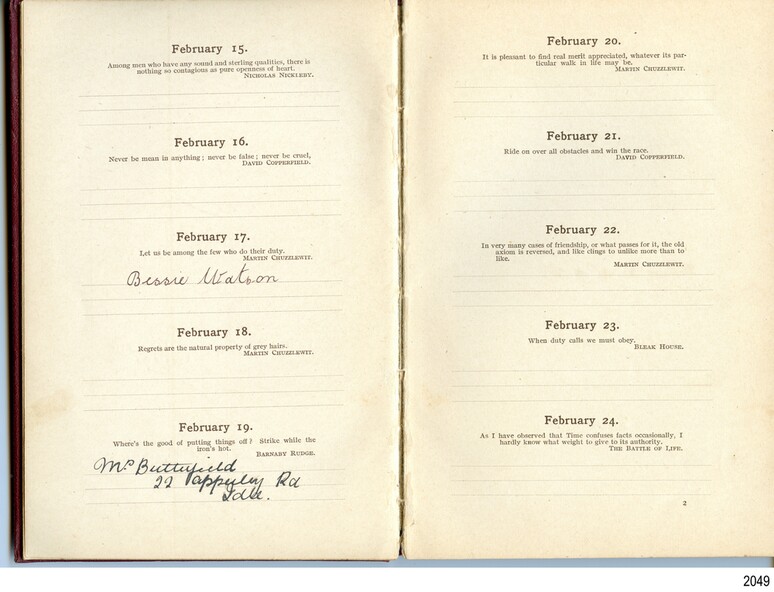 February 15.
Among men who have any sound and sterling qualities, there is
nothing so contagious as pure openness of heart.
Nicholas Nickleby.
February 16.
Never be mean in anything; never be false; never be cruel,
David Copperfield.
February 17.
Let us be among the few who do their duty.
Martin Chuzzlewit.
Bessie Watson
February 18.
Regrets are the natural property of grey hairs.
Martin Chuzzlewit.
February 19.
Where's the good of putting things off? Strike while the
iron's hot.
Barnaby Rudge.
Mrs Butterfield
22 Apperley Rd
Idle.
February 20.
It is pleasant to find real merit appreciated, whatever its par-
ticular walk in life may be.
Martin Chuzzlewit.
February 21.
Ride on over all obstacles and win the race.
David Copperfield.
February 22.
In very many cases of friendship, or what passes for it, the old
axiom is reversed, and like clings to unlike more than to
like.
Martin Chuzzlewit.
February 23.
When duty calls we must obey.
Bleak House.
February 24.
As I have observed that Time confuses facts occasionally, I
hardly know what weight to give to its authority.
The Battle of Life.
2
2049